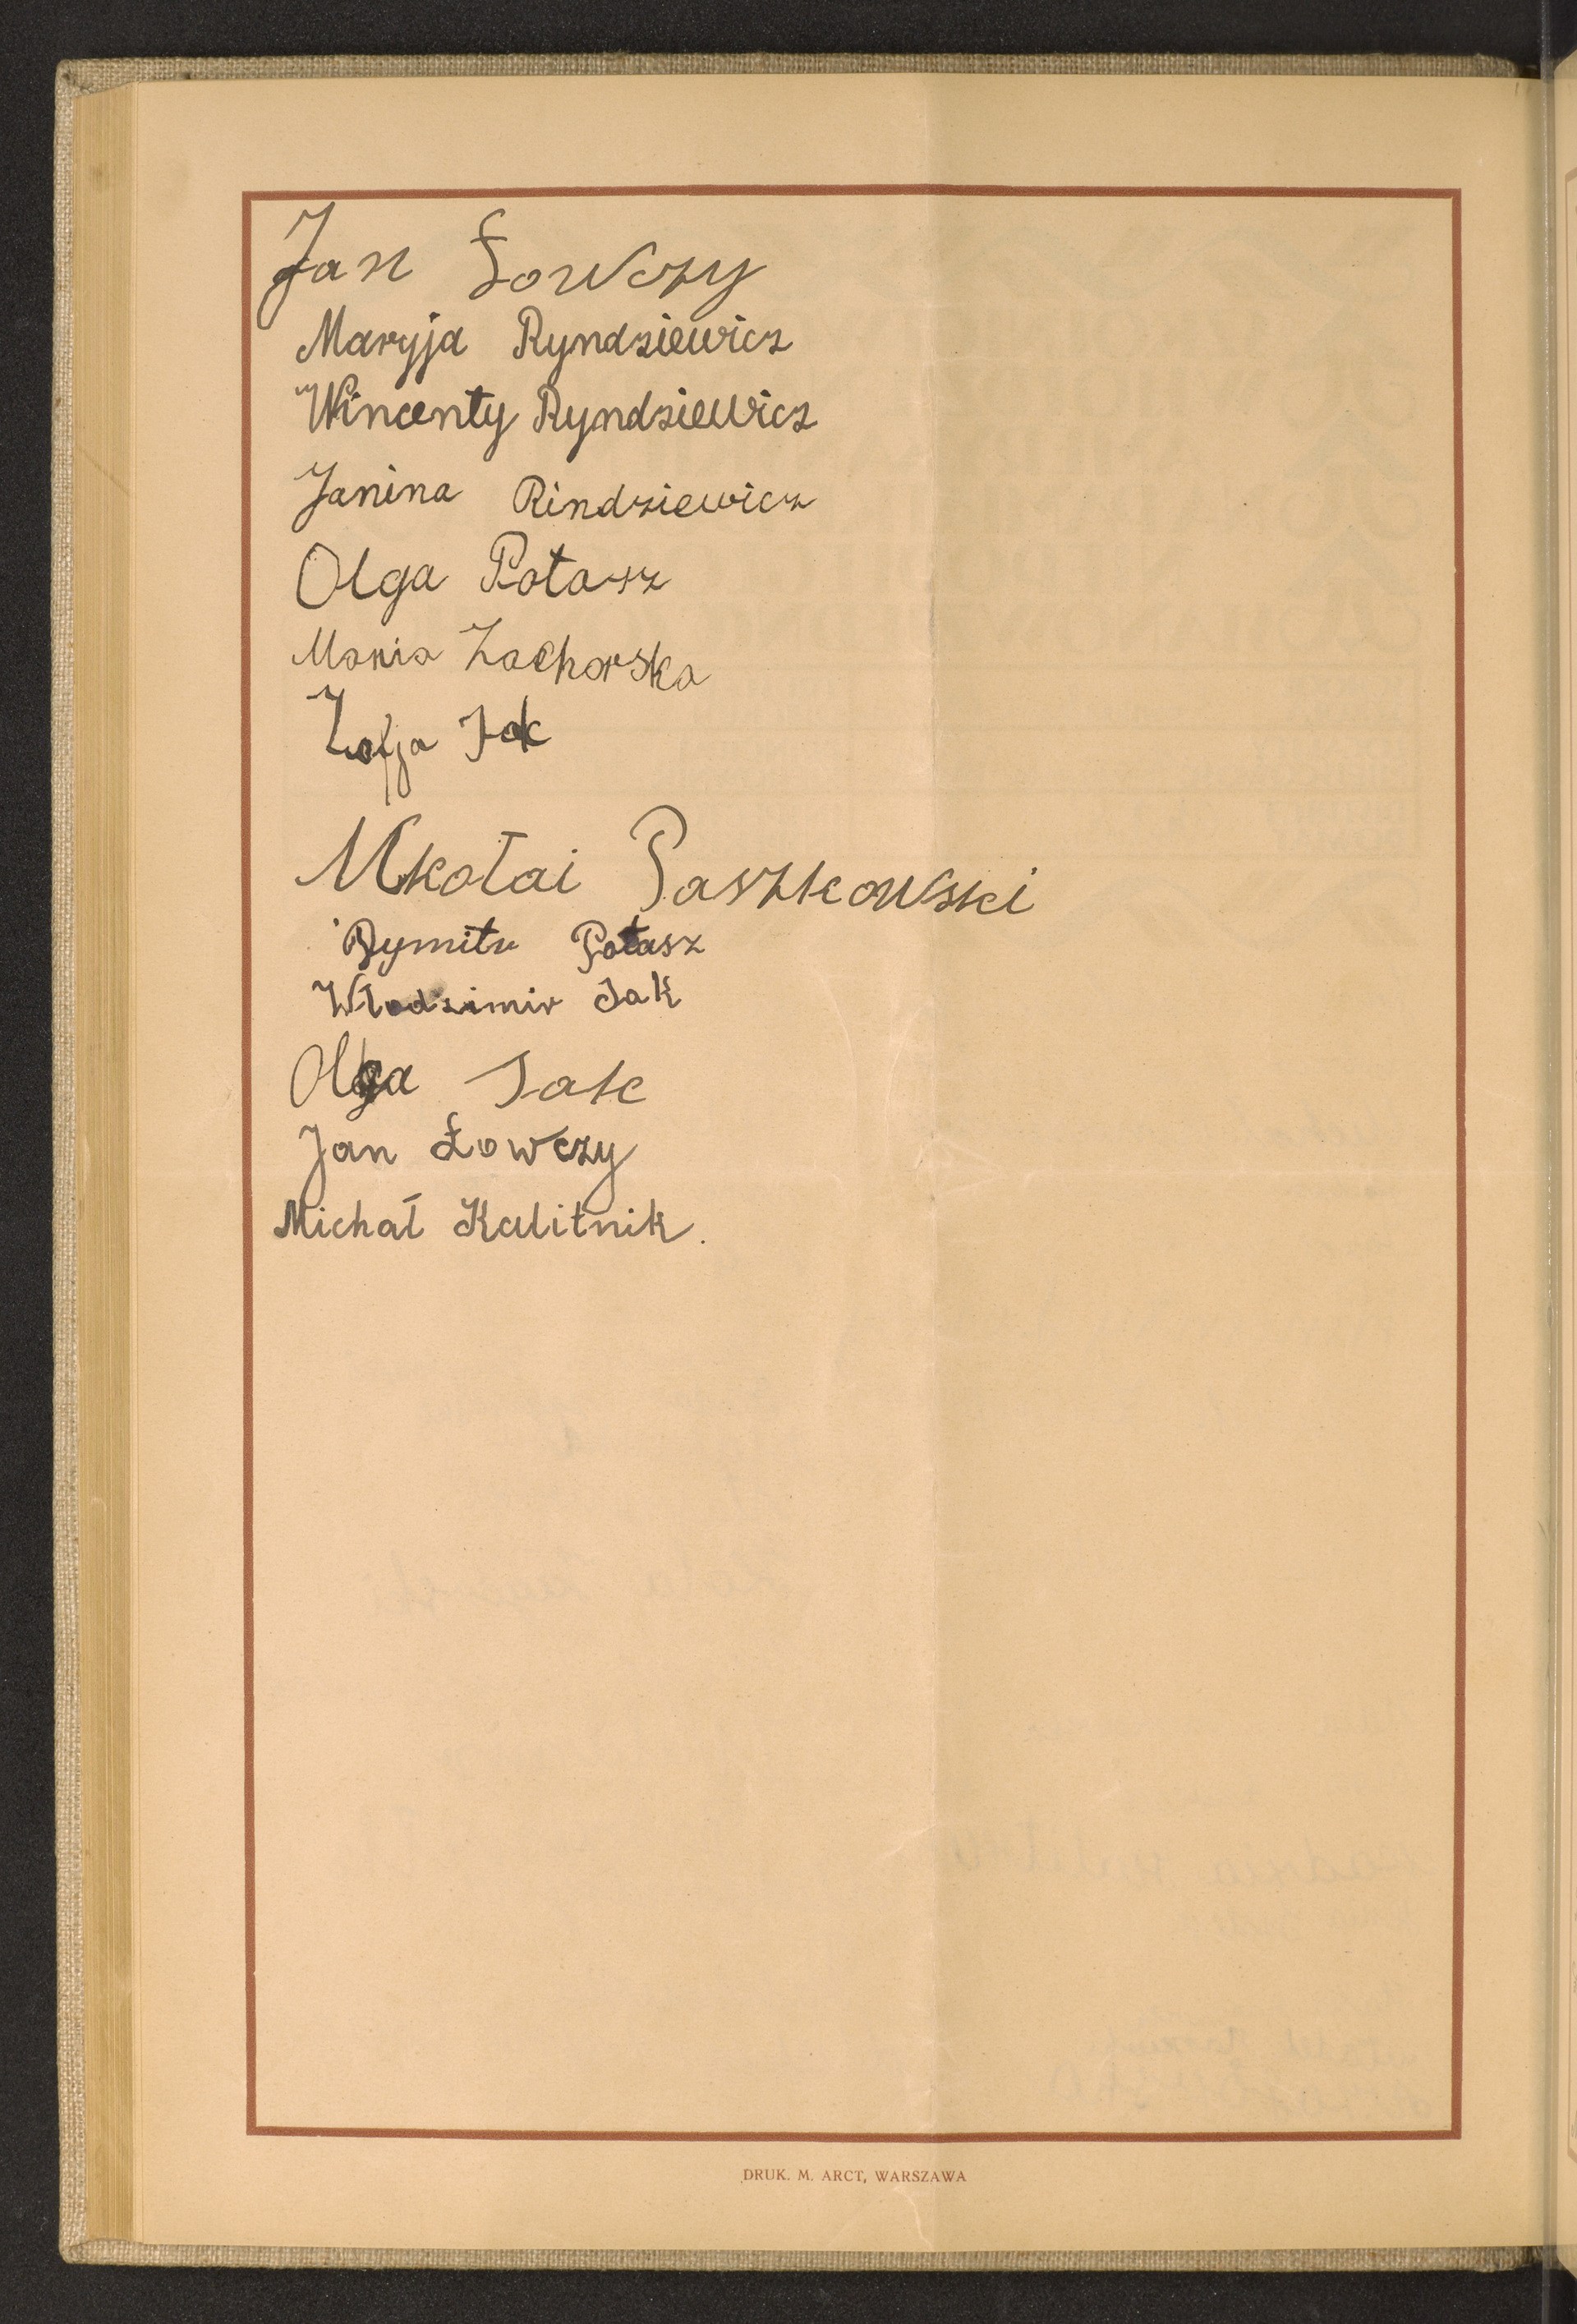 Jan Łowczy
Maryja Ryndziewicz
Wincenty Ryndziewicz
Janina Rindziewicz
Olga Potasz
Mania Zachorska
Zofja Jak
Mkołai Paszkowski
Dymitr Potasz
Włodzimir Jak
Olga Jak
Jan Łowczy
Michał Kulitnik.
DRUK. M. ARCT, WARSZAWA